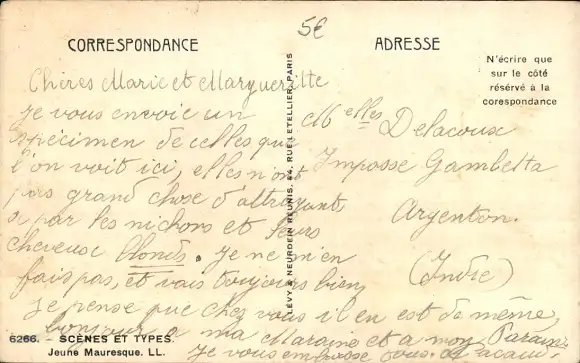 5€
CORRESPONDANCE
ADRESSE
N'écrire que
sur le côté
réservé à la
corespondance
Chères Marie et Margueritte
je vous envoie un
spécimen de celles que
l'on voit ici, elles n'ont
pas grand chose d'attrayant
à par les nichons et leurs
cheveux blonds. Je ne m'en
fais pas, et vais toujours bien
je pense que chez vous il en est de même,
bonjour a ma Maraine et a mon Paraine
Je vous embrasse
LÉVY & NEURDEIN RÉUNIS, 44, RUE LETELLIER, PARIS
Melles Delacoux
Imposse Gambetta
Argenton.
(Indre)
6266. - SCÈNES ET TYPES.
Jeune Mauresque. LL.